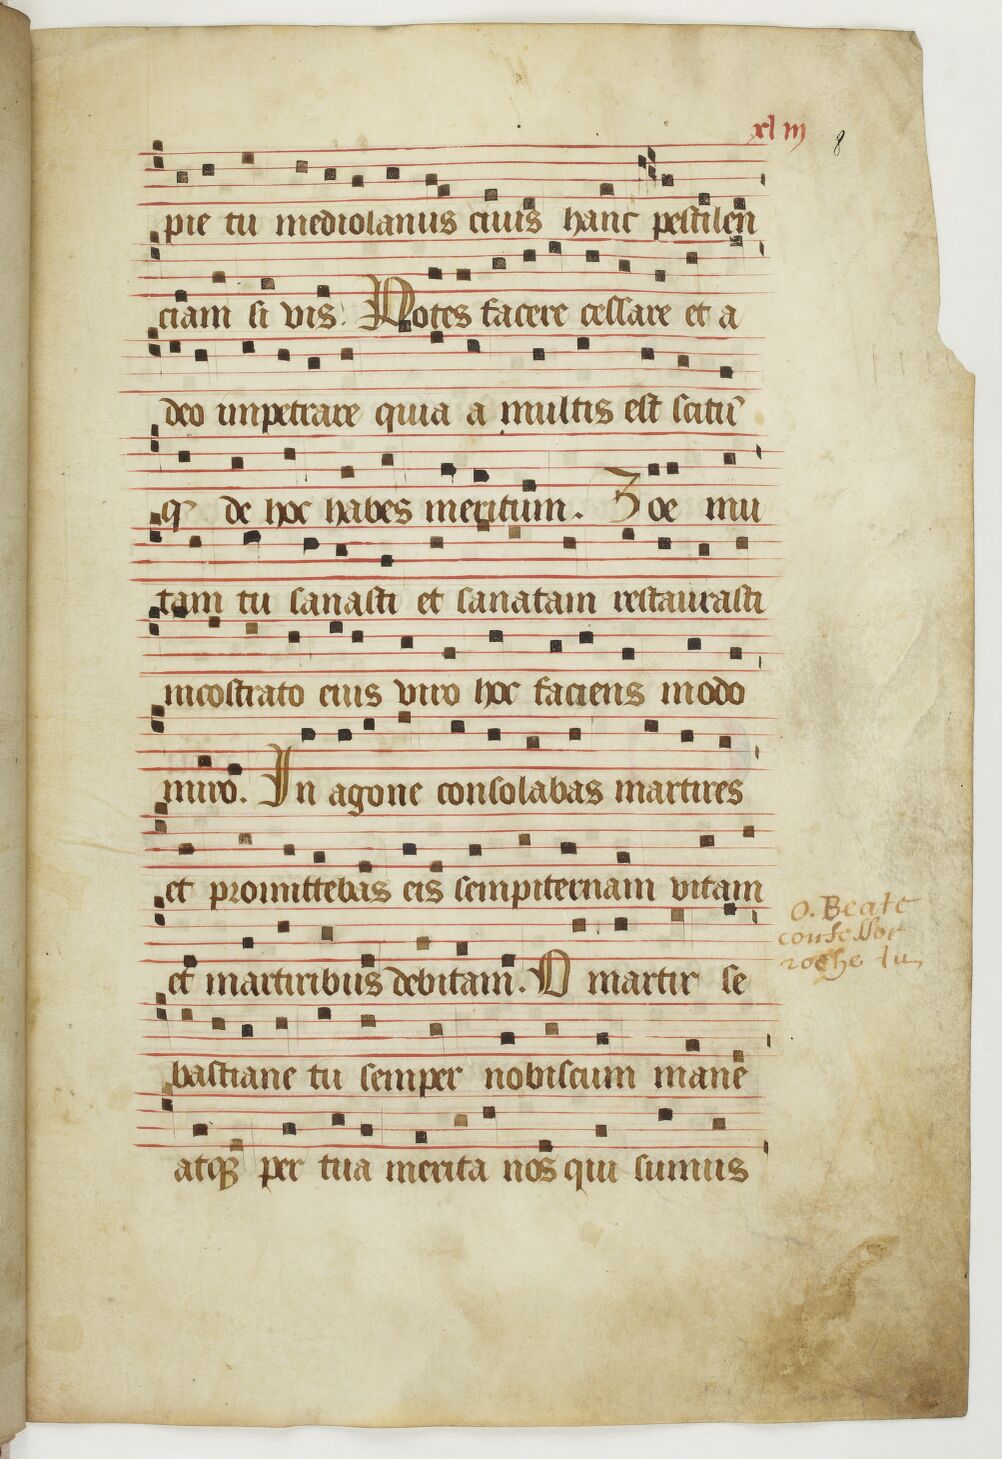 xliij 8
pie tu mediolanus ciuis hanc pestilen
ciam si vis. Potes facere cessare et a
deo impetrare quia a multis est scitū
qꝫ de hoc habes meritum. Zoe mu
tam tu sanasti et sanatam restaurasti
nicostrato eius viro hoc faciens modo
miro. In agone consolabas martires
et promittebas eis sempiternam vitam
et martiribus debitam. O martir se
bastiane tu semper nobiscum mane
atqꝫ per tua merita nos qui sumus
O. Beate
confessor
roche tu